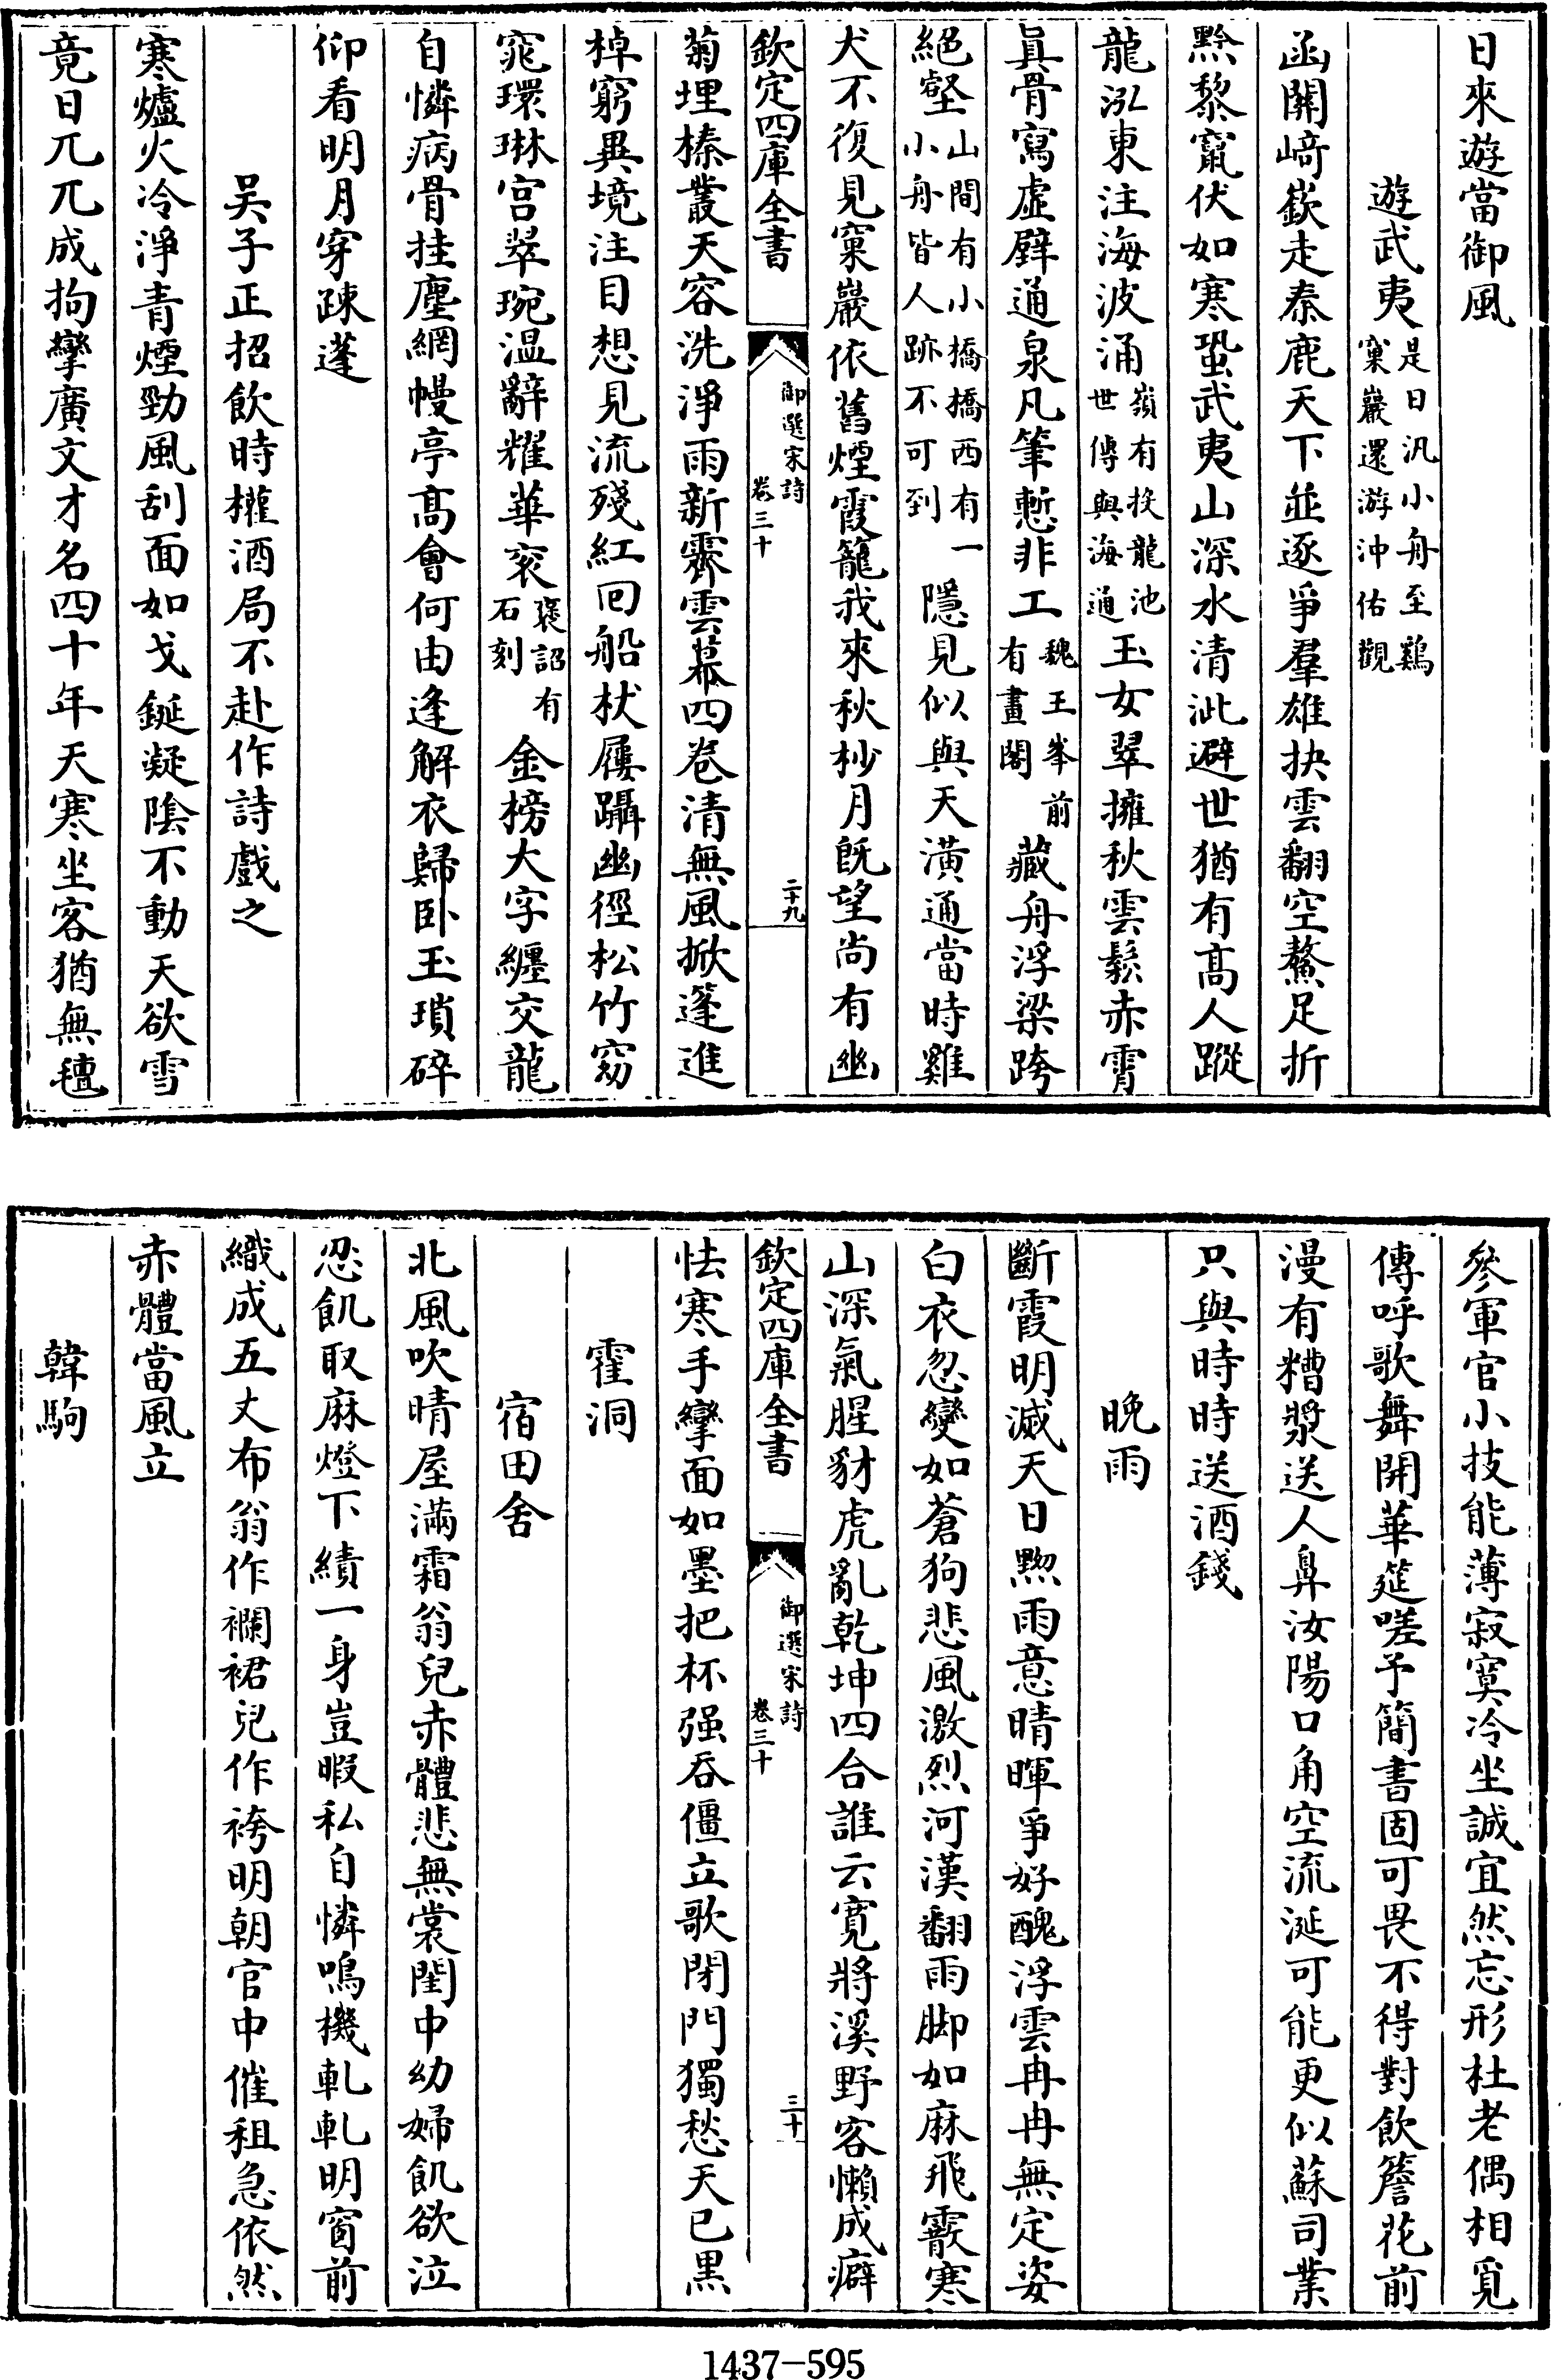 日來遊當御風
遊武夷是日汎小舟至鷄窠巖還游沖佑觀
函關﨑嶔走秦鹿天下並逐爭羣雄抉雲翻空鰲足折
黔黎竄伏如寒蛩武夷山深水清泚避世猶有髙人蹤
龍泓東注海波涌嶺有投龍池世傳與海通玉女翠擁秋雲鬆赤霄
真骨寫虛壁通泉凡筆慙非工魏王峯前有畫閣藏舟浮梁跨
絕壑山間有小橋橋西有一小舟皆人跡不可到隱見似與天潢通當時雞
犬不復見窠巖依舊煙霞籠我來秋杪月旣望尚有幽
欽定四庫全書
御選宋詩
卷三十
二十九
菊埋榛叢天容洗淨雨新霽雲幕四卷清無風掀篷進
棹窮異境注目想見流殘紅回船杖屨躡幽徑松竹窈
窕環琳宫翠琬溫辭耀華衮褒詔有石刻金榜大字纏交龍
自憐病骨挂塵網幔亭髙會何由逢解衣歸卧玉瑣碎
仰看明月穿疎蓬
吴子正招飲時權酒局不赴作詩戲之
寒爐火冷淨青煙勁風刮面如戈鋋凝陰不動天欲雪
竟日兀兀成拘攣廣文才名四十年天寒坐客猶無氊
參軍官小技能薄寂寞冷坐誠宜然忘形杜老偶相覓
傳呼歌舞開華筵嗟予簡書固可畏不得對飲簷花前
漫有糟漿送人鼻汝陽口角空流涎可能更似蘇司業
只與時時送酒錢
晚雨
斷霞明滅天日黦雨意晴暉爭好醜浮雲冉冉無定姿
白衣忽變如蒼狗悲風激烈河漢翻雨脚如麻飛霰寒
山深氣腥豺虎亂乾坤四合誰云寛將溪野客懶成癖
欽定四庫全書
御選宋詩
卷三十
三十
怯寒手攣面如墨把杯强吞僵立歌閉門獨愁天已黑
霍洞
宿田舍
北風吹晴屋滿霜翁兒赤體悲無裳閨中幼婦飢欲泣
忍飢取麻燈下績一身豈暇私自憐鳴機軋軋明窗前
織成五丈布翁作襴裙兒作袴明朝官中催租急依然
赤體當風立
韓駒
1437－595